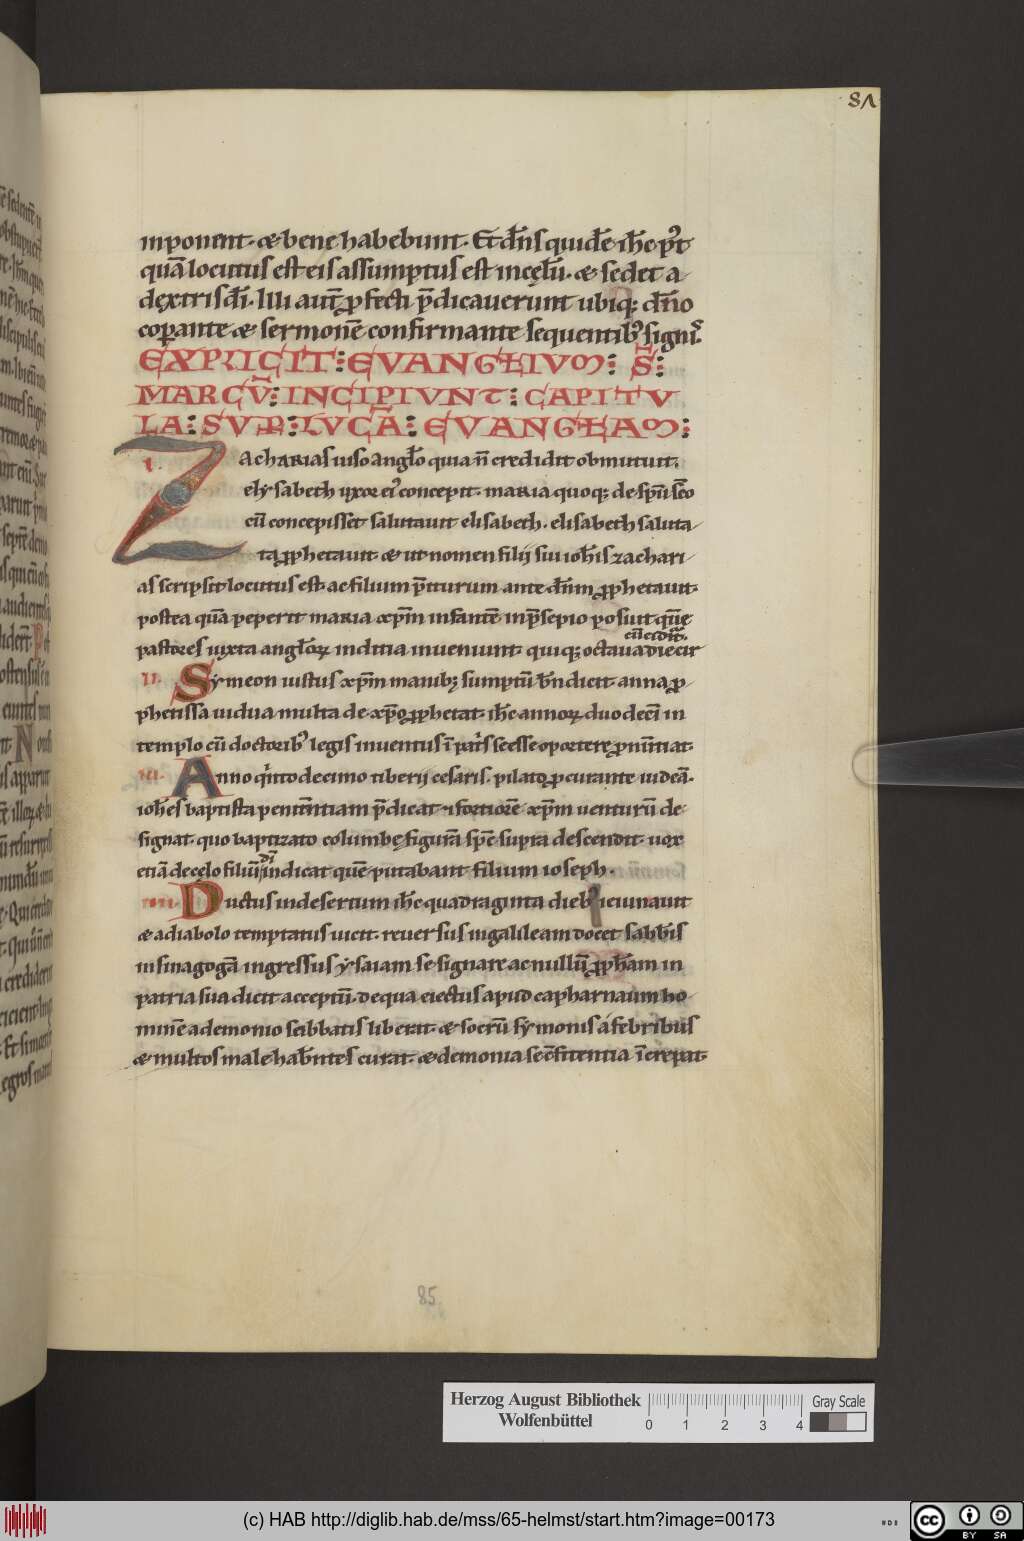 8Λ
inponent. & bene habebunt. Et dñs quidē. ihc p̄t
quā locutus est eis assumptus est in cęlū. & sedet a
dextris dī. Illi aut̄ p fecti p̄dicaverunt ubiq; dño
coperante & sermonē confirmante sequentib' signis.
EXPLICIT: EVANGLIVM: S:
MARCV: INCIPIVNT: CAPITV
LA: SVP: LVCĀ: EVANGLIAM:
I. Zacharias uiso anglo quia ñ credidit obmutuit.
elysabeth uxor ei' concepit. maria quoq; de spū sco
cū concepisset salutauit elisabeth. elisabeth saluta
ta pphetauit & ut nomen filii sui iohis zachari
as scripsit locutus est ac filium p̄iturum ante dñm pphetauit.
postea quā peperit maria xpm infantē in p̄sepio posuit
pastores iuxta anglorum inditia inueniunt. quiq; octaua die cir
II. Symeon iustus xpm manib; sumptū bñdicit anna p
phetissa uidua multa de xpo pphetat. ihc annorum duodeci in
templo cū doctorib' legis inuentus ī patris se esse oportere pnuntiat.
III. Anno qinto decimo tiberii cesaris. pilato pcurante iudeā.
iohes baptista penitentiam p̄dicat & fortiorē xpm uenturū de
signat. quo baptizato columbę figurā spc supra descendit. uox
etiā de cęlo filiū dī indicat quē putabant filium ioseph.
IIII. Ductus in desertum ihc quadraginta dieb' ieiunauit
& a diabolo temptatus uicit. reuersus in galileam docet sabbis
in sinagogā ingressus ysaiam se signare ac nullū ppham in
patria sua dicit acceptū. de qua eiectus apud capharnaum ho
minē a demonio scibbatis liberat. & socrū symonis a febribus
& multos male habñtes curat. & demonia se cfitentia īcrepat.
85
Herzog August Bibliothek
Wolfenbüttel
0 1 2 3 4
Gray Scale
(c) HAB http://diglib.hab.de/mss/65-helmst/start.htm?image=00173
cc BY SA